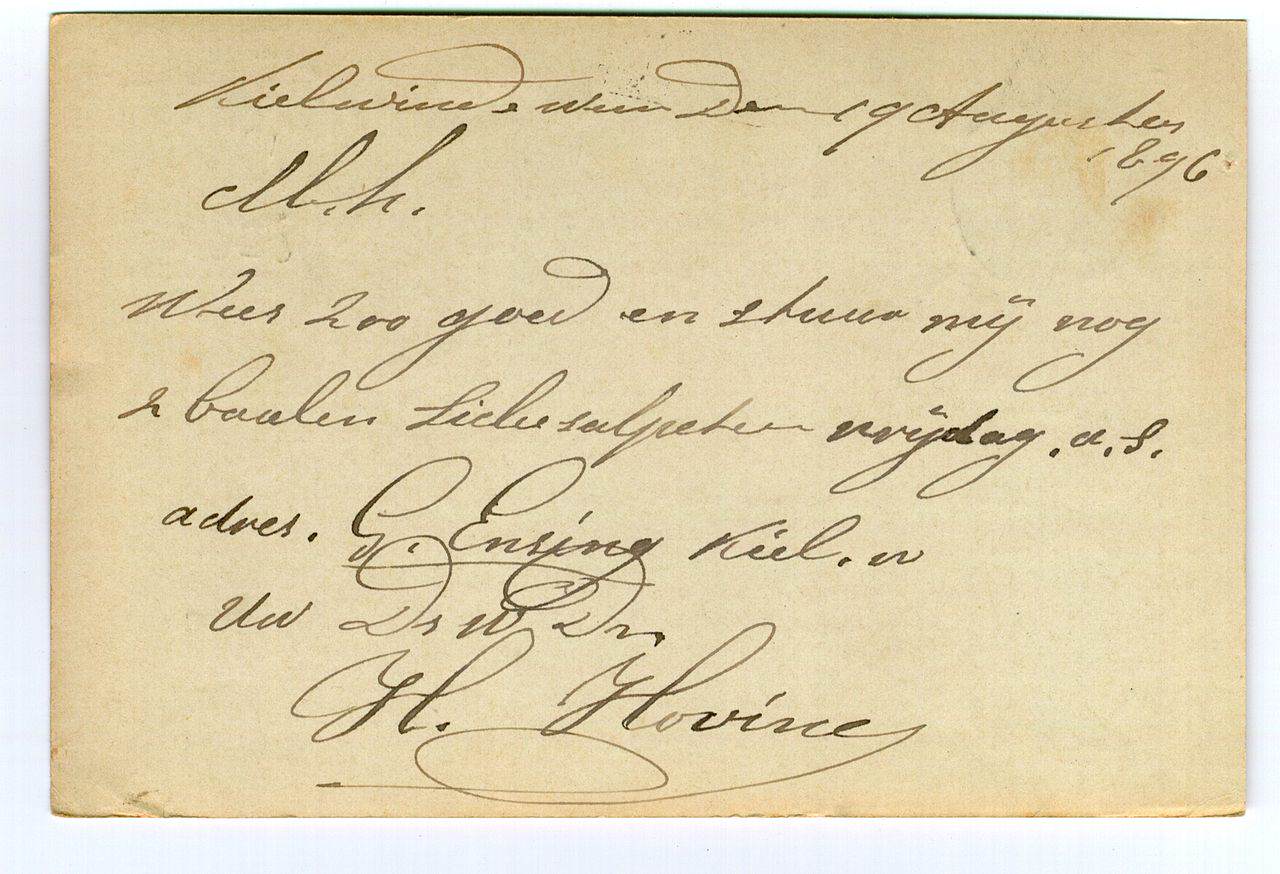 Kielwindeweer Den 19 Augustus
1896
M.h.
Wees zoo goed en stuur mij nog
2 baalen Zielesalpeter vrijdag. a. s.
adres. G. Ensing Kiel. w
Uw Ds W Dn.
H. Hovine